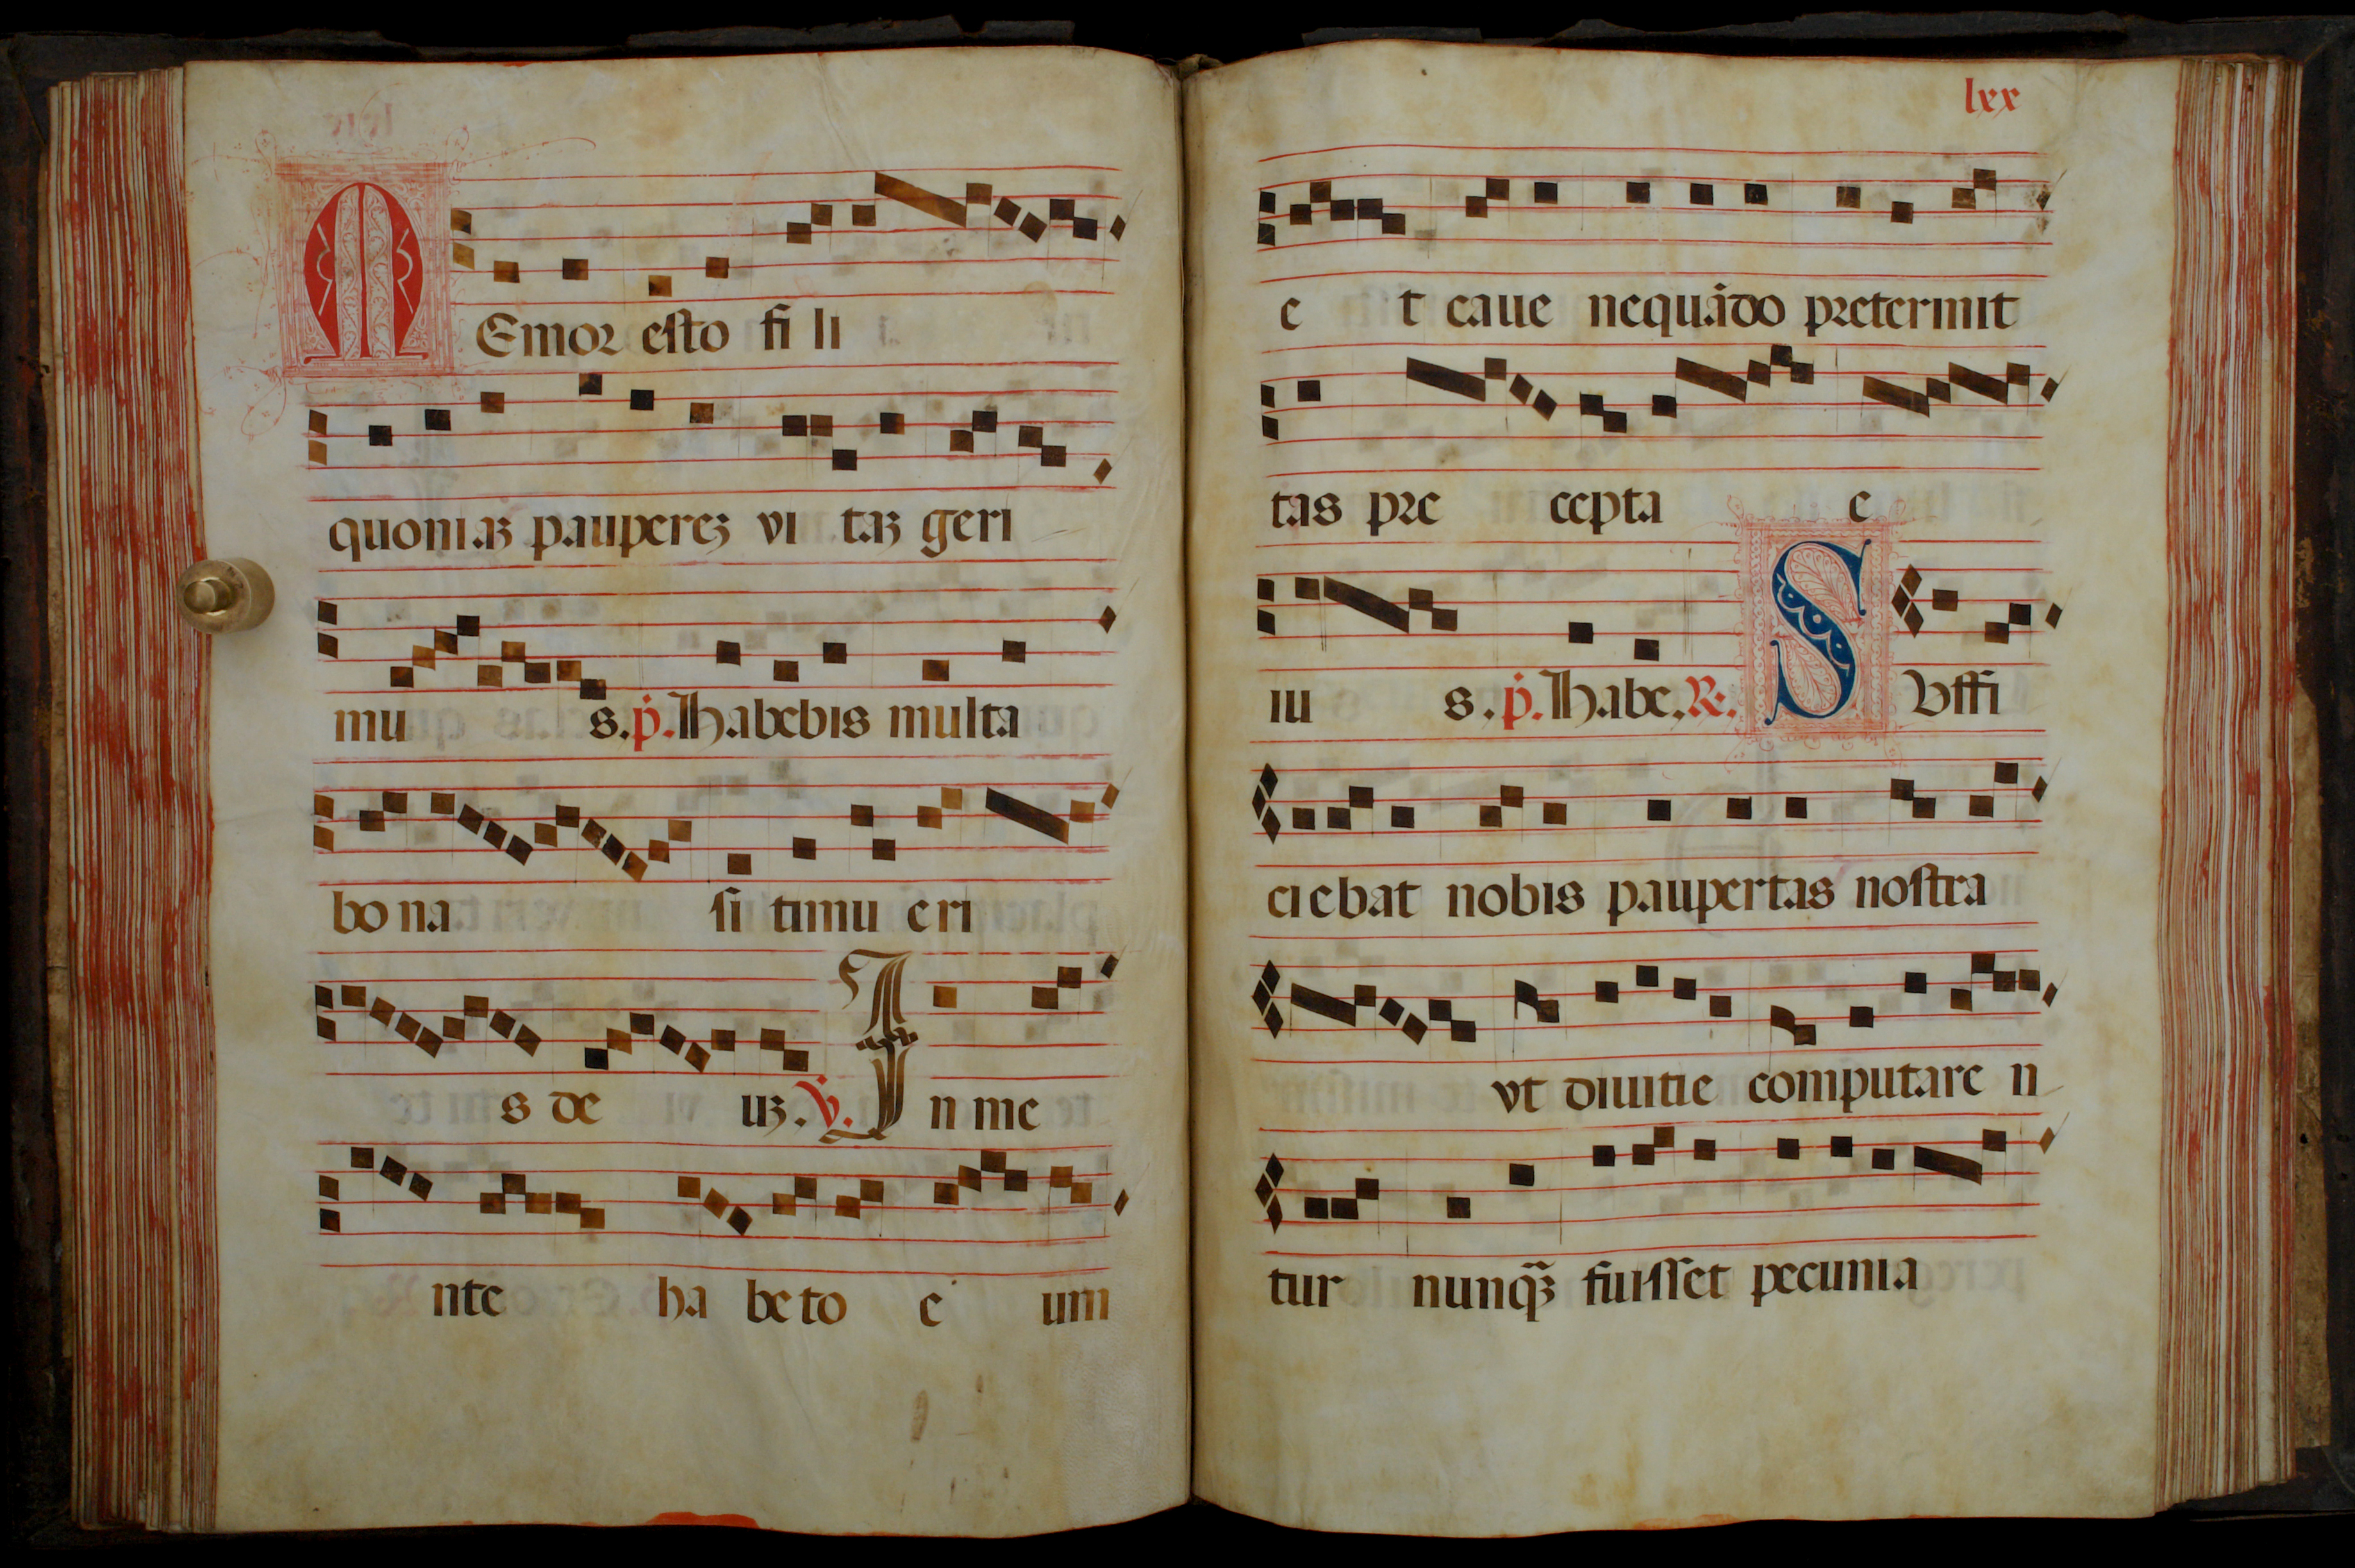 MEmor esto fi li
quoniaꝫ paupereꝫ vi taꝫ geri
mu s. ṗ. Habebis multa
bo na si timu eri
s de uꝫ. v̇. In me
nte ha be to e um
lxx
e t caue nequādo pretermit
tas pre cepta e
iu s. ṗ. Habe. R. SVffi
ci ebat nobis paupertas nostra
vt diuitie computare n
tur nunq̃ꝫ fuisset pecunia